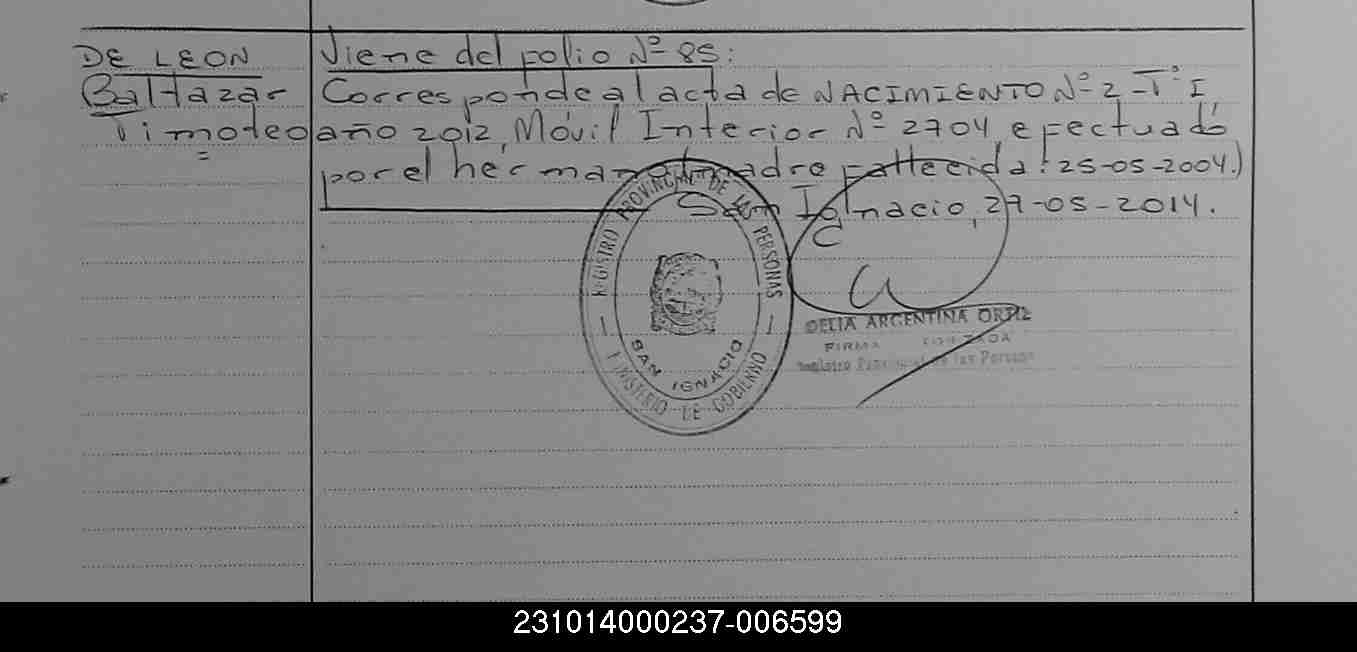 DE LEON
Baltazar
Timoteo
=
Viene del folio Nº 85:
Corresponde al acta de NACIMIENTO Nº 2 - Tº I,
año 2012, Móvil Interior Nº 2704, efectuado
por el hermano (madre fallecida: 25-05-2004.)
San Ignacio, 27-05-2014.
REGISTRO PROVINCIAL DE LAS PERSONAS
SAN IGNACIO
MINISTERIO DE GOBIERNO
DELIA ARGENTINA ORTIZ
FIRMA
Registro Provincial de las Personas
231014000237-006599